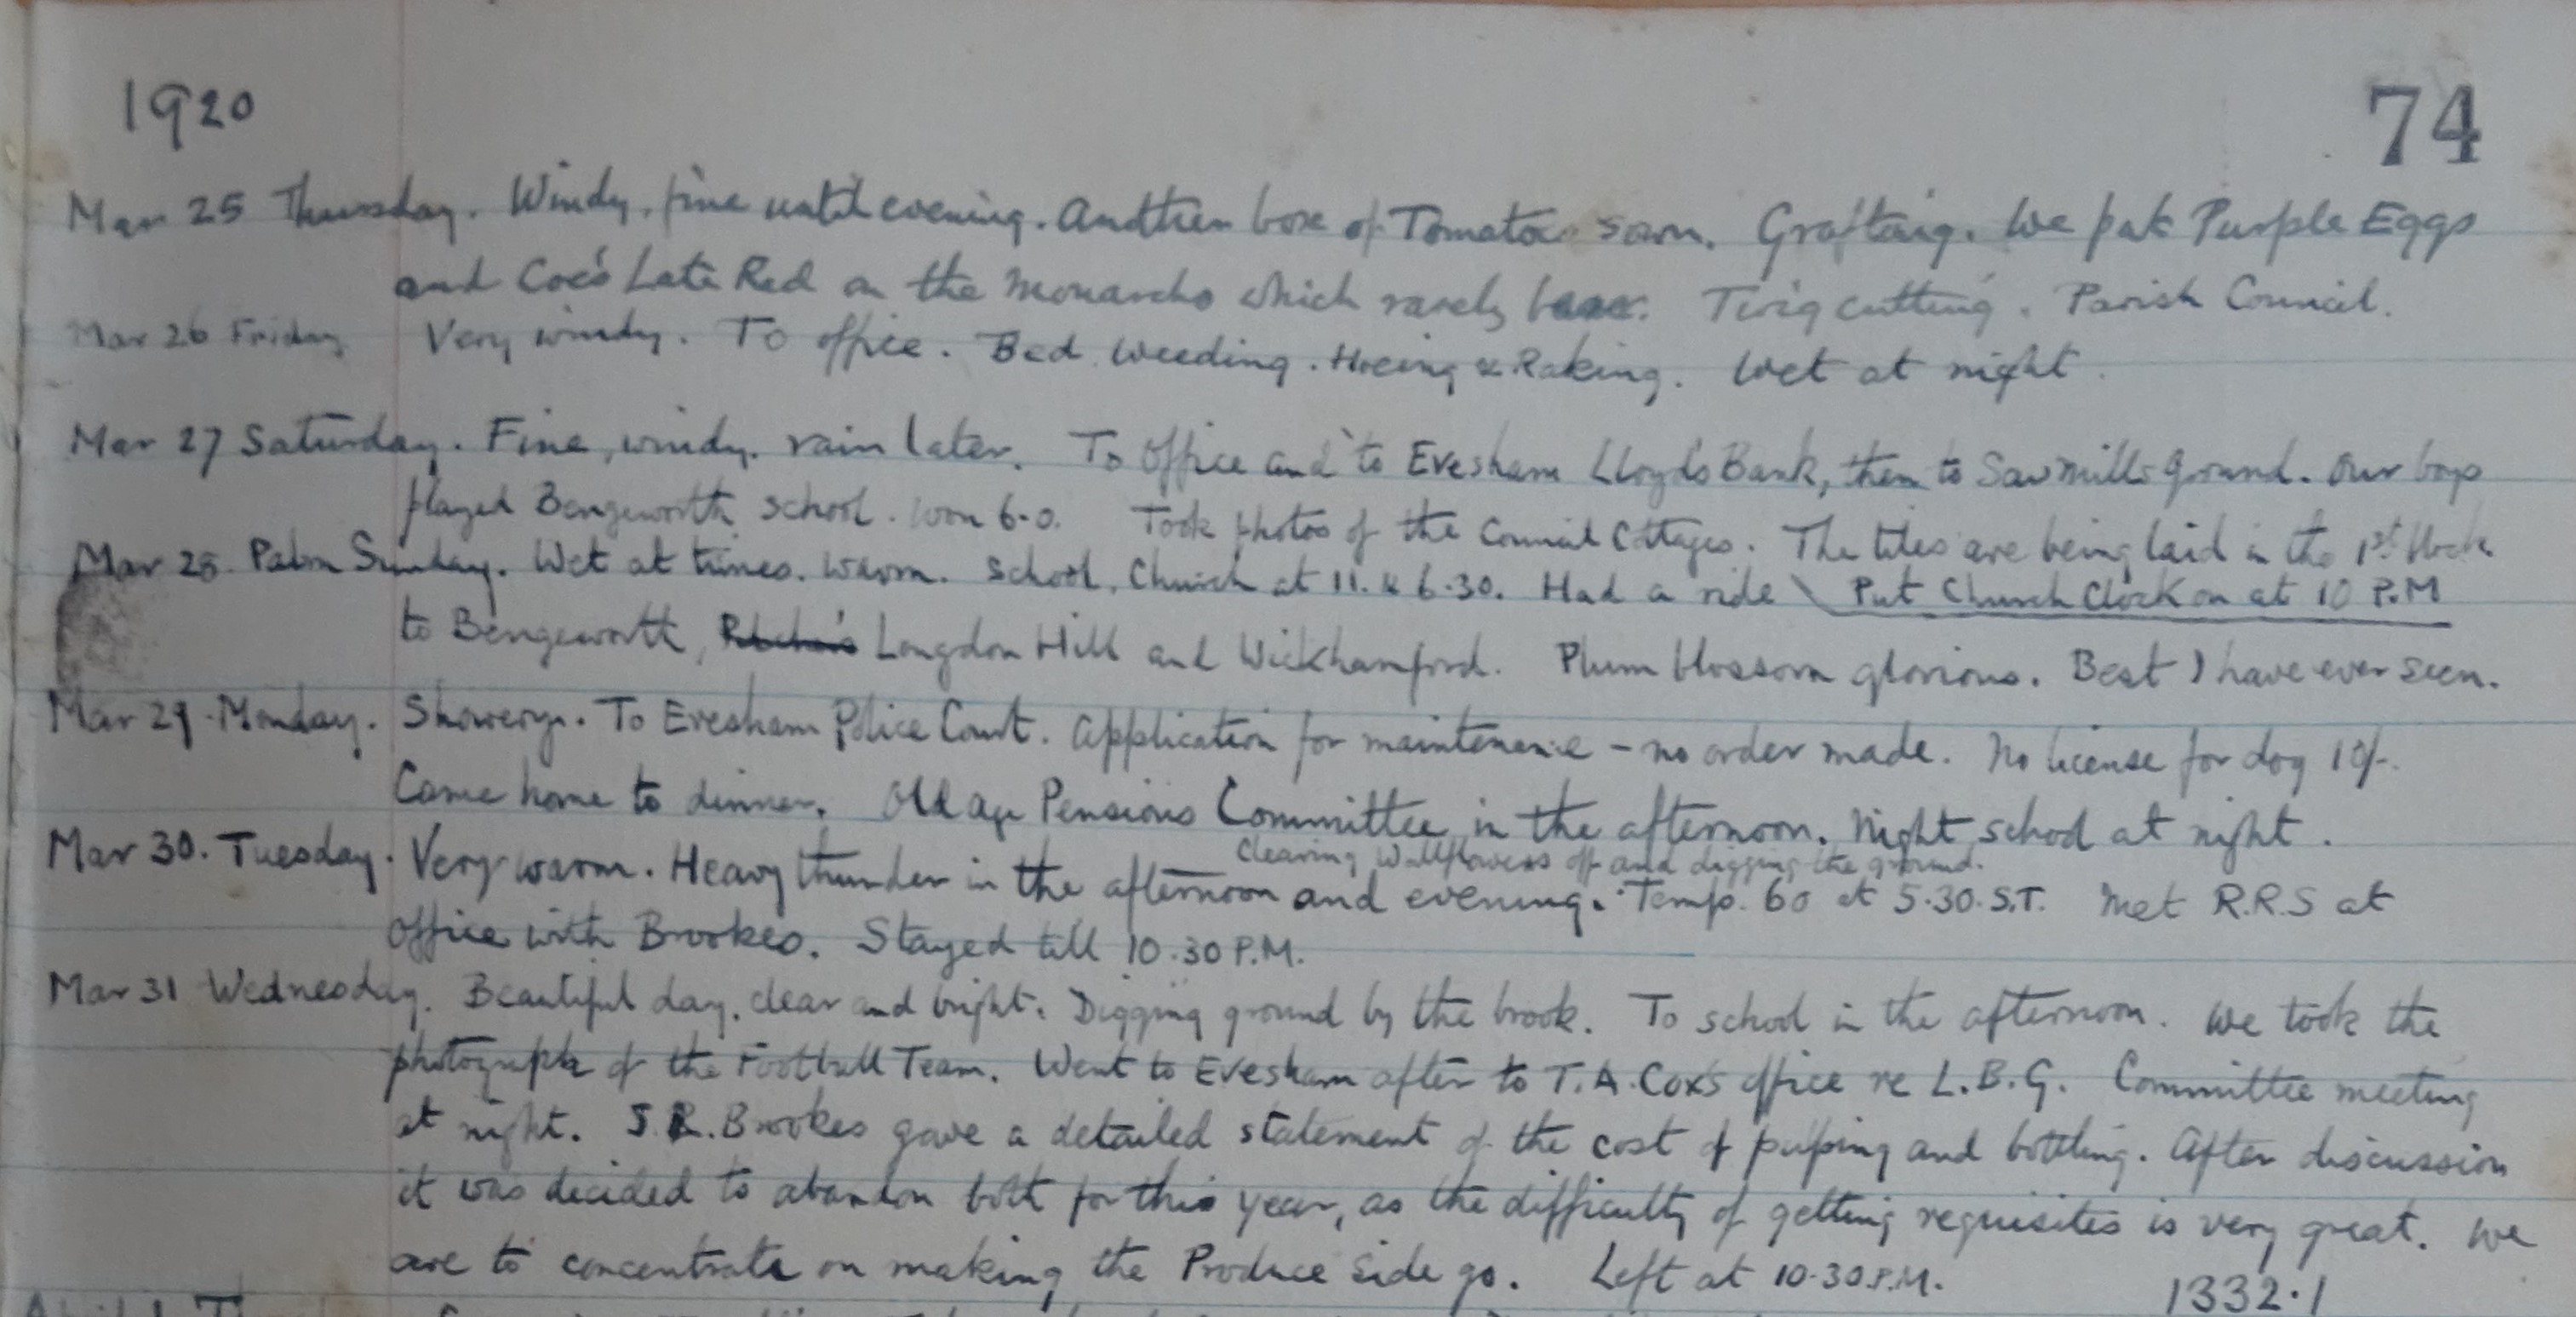 1920
74
Mar 25 Thursday. Windy, fine until evening. Another box of Tomatoes sown. Grafting. We put Purple Eggs
and Coe's Late Red on the Monarchs which rarely bear. Twig cutting. Parish Council.
Mar 26 Friday Very windy. To office. Bed Weeding. Hoeing & Raking. Wet at night.
Mar 27 Saturday. Fine, windy. rain later. To Office and to Evesham Lloyds Bank, then to Sawmills Ground. Our boys
played Bengeworth School. won 6-0. Took photos of the Council Cottages. The tiles are being laid in the 1st
Mar 28. Palm Sunday. Wet at times. Warm. School, Church at 11. & 6.30. Had a ride Put Church Clock on at 10 P.M
to Bengeworth, Longdon Hill and Wickhamford. Plum blossom glorious. Best I have ever seen.
Mar 29. Monday. Showery. To Evesham Police Court. Application for maintenance - no order made. No license for dog 10/-.
Came home to dinner. Old Age Pensions Committee in the afternoon. Night school at night.
Clearing Wallflowers off and digging the ground.
Mar 30. Tuesday. Very warm. Heavy thunder in the afternoon and evening. Temp. 60 at 5.30.S.T. Met R.R.S at
Office with Brookes. Stayed till 10.30 P.M.
Mar 31 Wednesday. Beautiful day, clear and bright. Digging ground by the brook. To school in the afternoon. We took the
photograph of the Football Team. Went to Evesham after to T.A. Cox's office re L.B.G. Committee meeting
at night. J.R. Brookes gave a detailed statement of the cost of pulping and bottling. After discussion
it was decided to abandon both for this year, as the difficulty of getting requisites is very great. We
are to concentrate on making the Produce Side go. Left at 10.30 P.M. 1332.1